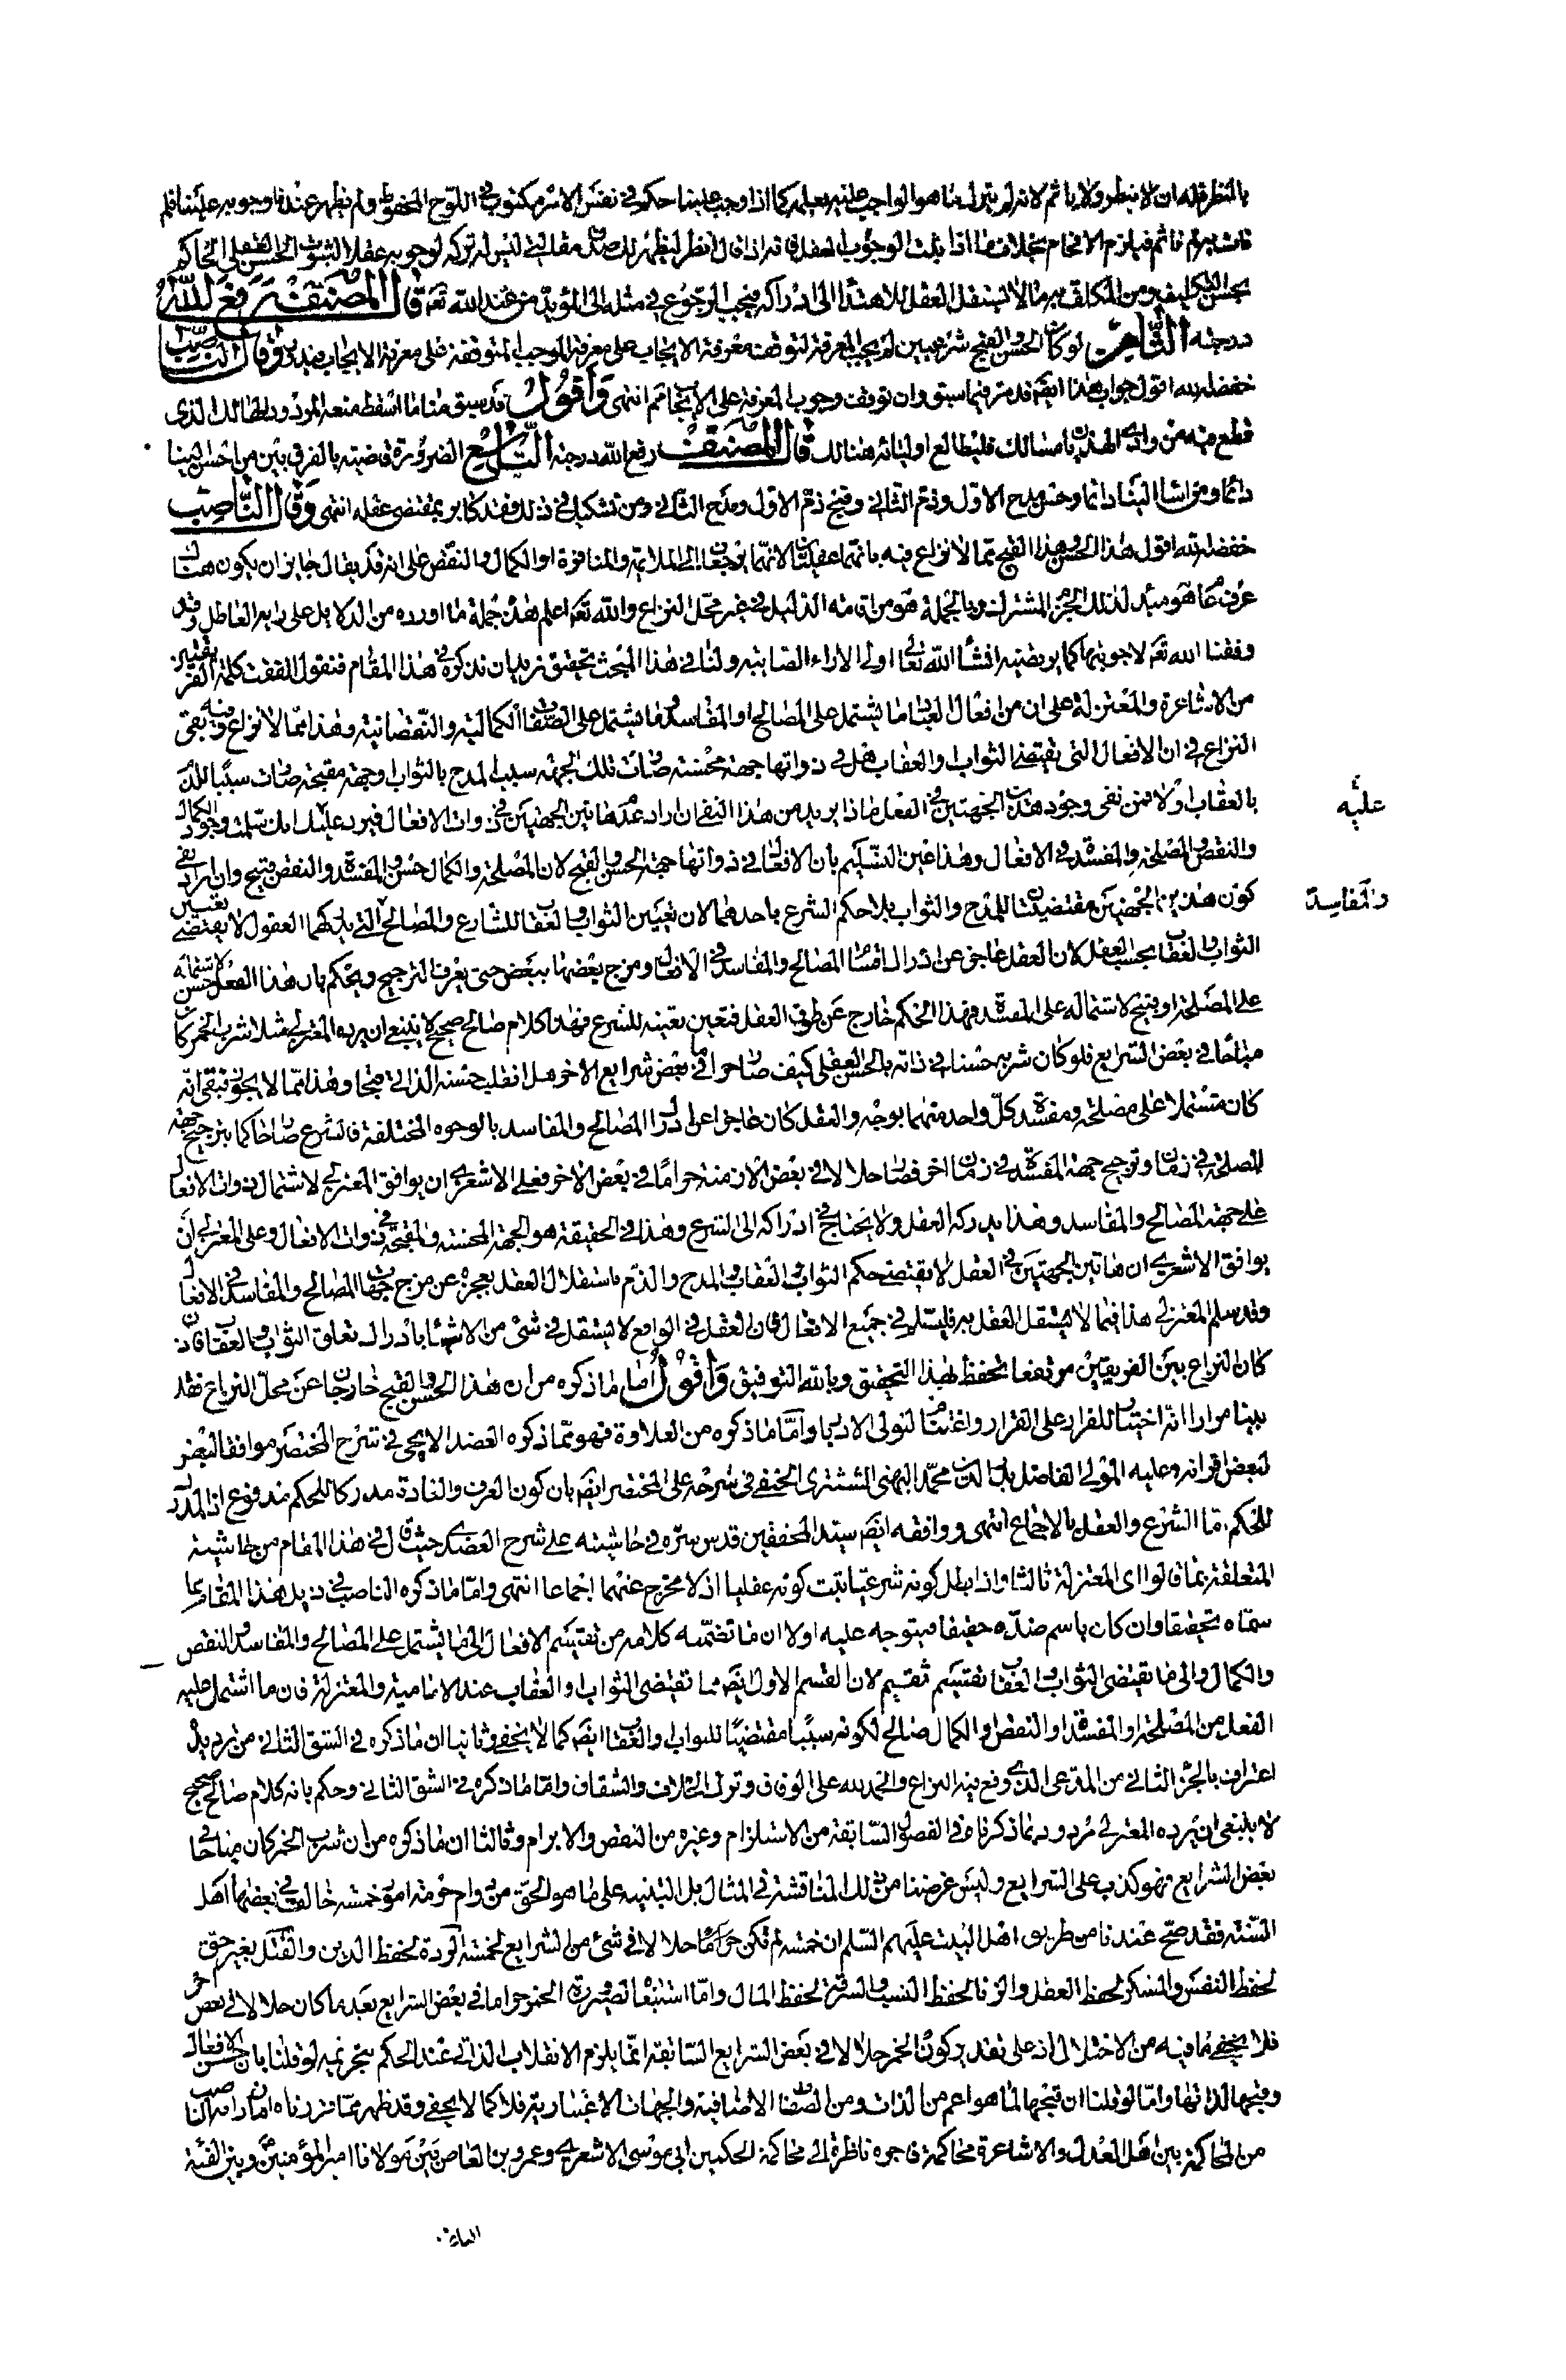 بالنظر فله ان لا ينظر ولا ياثم لانه لم يترك ما هو الواجب عليه بعلمه كما اذا وجب علينا حكم في نفس الامر مكتوب في اللوح المحفوظ ولم يظهر عندنا وجوبه علينا فلم
نات به لم ناثم فيلزم الافحام بخلاف ما اذا ثبت الوجوب العقلي فانه اذا قال انظر ليظهر لك صدق مقالتي ليس له تركه لوجوبه عقلا لثبوت الحسن العقلي الحاكم
بحسن التكليف من المكلف به مما لا يستقل العقل للاهتداء الى ادراكه فيجب الرجوع في مثله الى المؤيد من عند الله تعالى قال المصنف رفع الله
درجته الثامن لو كان الحسن والقبح شرعيين لم يجب المعرفة لتوقف معرفة الايجاب على معرفة الموجب المتوقفة على معرفة الايجاب فيدور وقال الناصب
خفضه الله اقول جواب هذا ايضا قد مر فيما سبق وان توقف وجوب المعرفة على الايجاب ثم انتهى واقول قد سبق منا ما اسقط منعه المردود الذي
قطع منه من وادى الهذيان مسالك فليطالع اوليائه هنالك قال المصنف رفع الله درجته التاسع الضرورة قاضية بالفرق بين من احسن الينا
دائما ومن اساء الينا دائما وحسن مدح الاول وذم الثاني وقبح ذم الاول ومدح الثاني ومن تشكك في ذلك فقد كابر بمقتضى عقله انتهى وقال الناصب
خفضه الله اقول هذا الحسن وهذا القبح مما لا نزاع فيه بانهما عقليان لانهما يرجعان الى الملايمة والمنافرة او الكمال والنقص على انه قد يقال جايز ان يكون هناك
عرف عام هو مبدء لذلك الجزم المشترك وبالجملة هو من اقامة الدليل في غير محل النزاع والله تعالى اعلم هذه جملة ما اورده من الدلايل على رايه العاطل وقد
وفقنا الله تعالى لاجوبتها كما يرتضيه انشأ الله تعالى اولى الاراء الصائبة ولنا في هذا المبحث تحقيق نريد ان نذكره في هذا المقام فنقول اتفقت كلمة الفريقين
من الاشاعرة والمعتزلة على ان من افعال العباد ما يشتمل على المصالح او المفاسد وما يشتمل على الصفات الكمالية والنقصانية وهذا مما لا نزاع فيه وبقى
النزاع في ان الافعال التي تقتضي الثواب والعقاب هل في ذواتها جهة محسنة صارت تلك الجهة سبب المدح بالثواب وجهة مقبحة صارت سببا للذم
بالعقاب او لا فمن نفى وجود هذين الجهتين في الفعل ماذا يريد من هذا النفي ان اراد عدم هاتين الجهتين في ذوات الافعال فيرد عليه انك سلمت وجود الكمال
عليه
والنقص والمصلحة والمفسدة في الافعال وهذا عين التسليم بان الافعال في ذواتها جهة الحسن والقبح لان المصلحة والكمال حسن والمفسدة والنقص قبيح وان اراد نفى
كون هذين الجهتين مقتضيتين للمدح والثواب بلا حكم الشرع باحدهما لان تعيين الثواب والعقاب للشارع والمصالح التي يدركها العقول لا يقتضى تعيين
والمفاسد
الثواب والعقاب بحسب العقل لان العقل عاجز عن ادراك اقسام المصالح والمفاسد في الافعال ومزج بعضها ببعض حتى يعرف الترجيح ويحكم بان هذا الفعل حسن لاشتماله
على المصلحة او قبيح لاشتماله على المفسدة فهذا الحكم خارج عن طوق العقل فتعين تعينه للشرع فهذا كلام صالح صحيح لا ينبغي ان يرده المعتزلي مثلا شرب الخمر كان
مباحا في بعض الشرايع فلو كان شربه حسنا في ذاته بالحسن العقلي كيف صار حراما في بعض شرايع الاخر هل انقلب حسنه الذاتي قبحا وهذا مما لا يجوز فبقى انه
كان مشتملا على مصلحة ومفسدة كل واحد منهما بوجه والعقل كان عاجزا عن ادراك المصالح والمفاسد بالوجوه المختلفة فالشرع صار حاكما بترجيح جهة
المصلحة في زمان وترجيح جهة المفسدة في زمان اخر فصار حلالا في بعض الازمنة حراما في بعض الاخر فعلى الاشعري ان يوافق المعتزلي لاشتمال ذوات الافعال
على جهة المصالح والمفاسد وهذا يدركه العقل ولا يحتاج في ادراكه الى الشرع وهذا في الحقيقة هو الجهة المحسنة والمقبحة في ذوات الافعال وعلى المعتزلي ان
يوافق الاشعري ان هاتين الجهتين في العقل لا يقتضي حكم الثواب والعقاب والمدح والذم باستقلال العقل بعجزه عن مزج جهات المصالح والمفاسد في الافعال
وقد سلم المعتزلي هذا فيما لا يستقل العقل به فليسلم في جميع الافعال فان العقل في الواقع لا يستقل في شئ من الاشياء بادراك تعلق الثواب والعقاب فان
كان النزاع بين الفريقين مرتفعا تحفظ بهذا التحقيق وبالله التوفيق واقول اما ما ذكره من ان هذا الحسن والقبح خارجان عن محل النزاع فقد
بينا مرارا انه اختيار للفرار على القرار واغتنام لتولى الادبار واما ما ذكره من العلاوة فهو مما ذكره العضد الايجي في شرح المختصر موافقا لبعض
لبعض اقرانه وعليه المولى الفاضل بدر الدين محمد البهمنى الششترى الحنفي في شرحه على المختصر ايضا بان كون العرف والعادة مدركا للحكم مدفوع اذ المدرك
للحكم اما الشرع والعقل بالاجماع انتهى ووافقه ايضا سيد المحققين قدس سره في حاشيته على شرح العضدى حيث قال في هذا المقام من الحاشية
المتعلقة بما قالوا اى المعتزلة ثالثا واذا بطل كونه شرعيا ثبت كونه عقليا اذ لا مخرج عنهما اجماعا انتهى واما ما ذكره الناصب في ذيل هذا المقام مما
سماه تحقيقا وان كان باسم ضده حقيقا فيتوجه عليه اولا ان ما تضمنه كلامه من تقسيم الافعال الى ما يشتمل على المصالح والمفاسد والنقص
والكمال والى ما يقتضى الثواب والعقاب تقسيم سقيم لان القسم الاول ايضا مما تقتضى الثواب والعقاب عند الامامية والمعتزلة فان ما اشتمل عليه
الفعل من المصلحة او المفسدة او النقص والكمال صالح لكونه سببا مقتضيا للثواب والعقاب ايضا كما لا يخفى وثانيا ان ما ذكره في الشق الثاني من ترديده
اعتراف بالجزء الثاني من المدعى الذي وقع فيه النزاع والحمد لله على الوفاق وترك الخلاف والشقاق واما ما ذكره في الشق الثاني وحكم بانه كلام صالح صحيح
لا ينبغي ان يرده المعتزلي مردود بما ذكرناه في الفصول السابقة من الاستلزام وغيره من النقض والابرام وثالثا ان ما ذكره من ان شرب الخمر كان مباحا في
بعض الشرايع فهو كذب على الشرايع وليس غرضنا من ذلك المناقشة في المثال بل التنبيه على ما هو الحق من دوام حرمة امور خمسة خالف في بعضها اهل
السنة فقد صح عندنا من طريق اهل البيت عليهم السلم ان خمسة لم تكن حلالا في شئ من الشرايع الخمسة الردة لحفظ الدين والقتل بغير حق
لحفظ النفس والمسكر لحفظ العقل والزنا لحفظ النسب والسرقة لحفظ المال واما استبعاد صيرورة الخمر حراما في بعض الشرايع بعد ما كان حلالا في بعض اخر
فلا يخفى ما فيه من الاختلال اذ على تقدير كون الخمر حلالا في بعض الشرايع السابقة انما يلزم الانقلاب الذاتي عند الحكم بتحريمه لو قلنا بان حسن الافعال
وقبحها لذاتها واما لو قلنا ان قبحها لما هو اعم من الذات ومن الصفات الاضافية والجهات الاعتبارية فلا كما لا يخفى وقد ظهر مما قررناه ان ما رامه الناصب
من المحاكمة بين اهل العدل والاشاعرة محاكمة فاجره ناظرة الى محاكمة الحكمين ابي موسى الاشعري وعمرو بن العاص بين مولانا امير المؤمنين وبين الفئة
الباغية